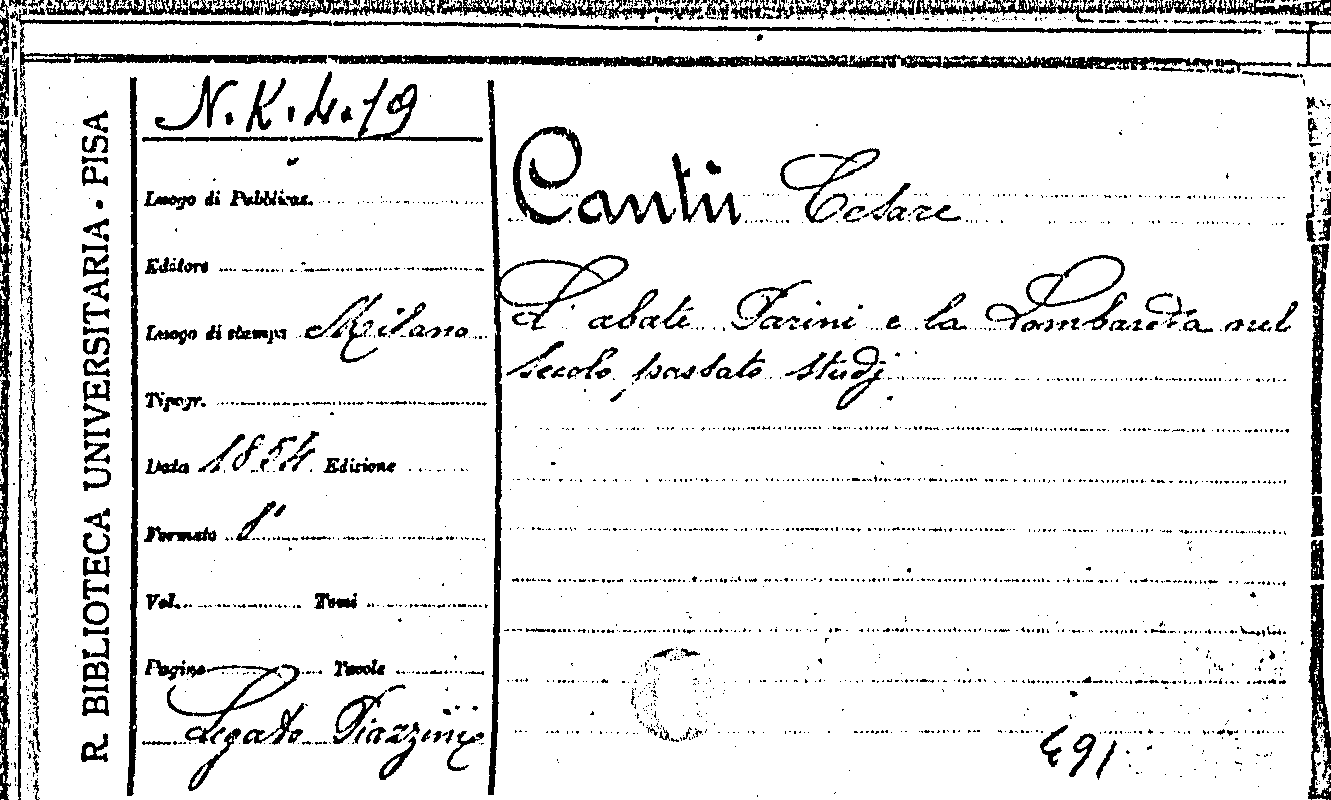 R. BIBLIOTECA UNIVERSITARIA - PISA
N. K. 4. 19
Luogo di Pubblicaz.
Editore
Luogo di stampa Milano
Tipogr.
Data 1854 Edizione
Formato 8°
Vol. Tomi
Pagine Tavole
Legato Piazzini
Cantù Cesare
L' abate Parini e la Lombardia nel
secolo passato studj